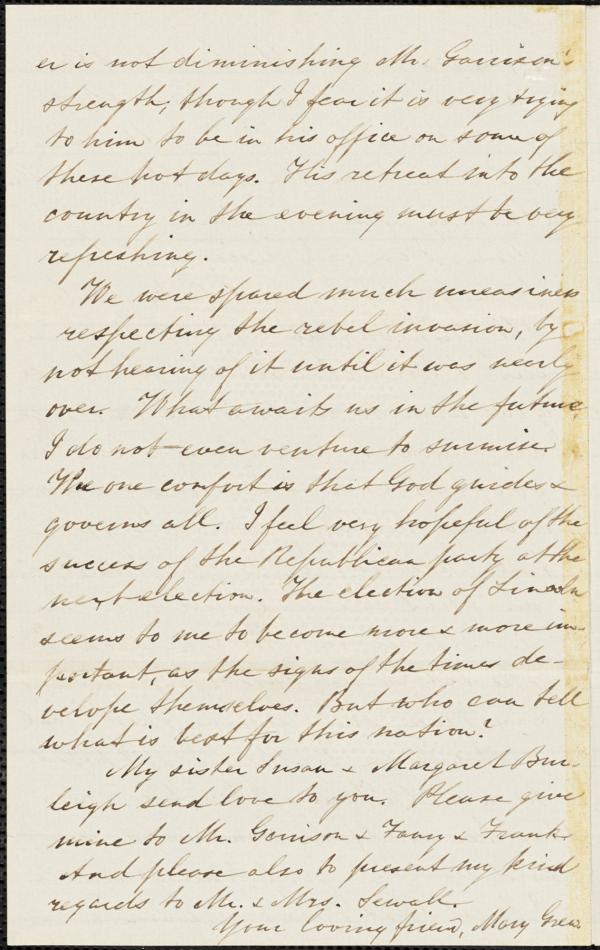 er is not diminishing Mr. Garrison's
strength, though I fear it is very trying
to him to be in his office on some of
these hot days. His retreat into the
country in the evening must be very
refreshing.
We were spared much uneasiness
respecting the rebel invasion, by
not hearing of it until it was nearly
over. What awaits us in the future,
I do not even venture to surmise.
The one comfort is that God guides &
governs all. I feel very hopeful of the
success of the Republican party at the
next election. The election of Lincoln
seems to me to become more & more im-
portant, as the signs of the times de-
velope themselves. But who can tell
what is best for this nation?
My sister Susan & Margaret Bur-
leigh send love to you. Please give
mine to Mr. Garrison & Fanny & Frank.
And please also to present my kind
regards to Mr. & Mrs. Sewall.
Your loving friend, Mary Grew.